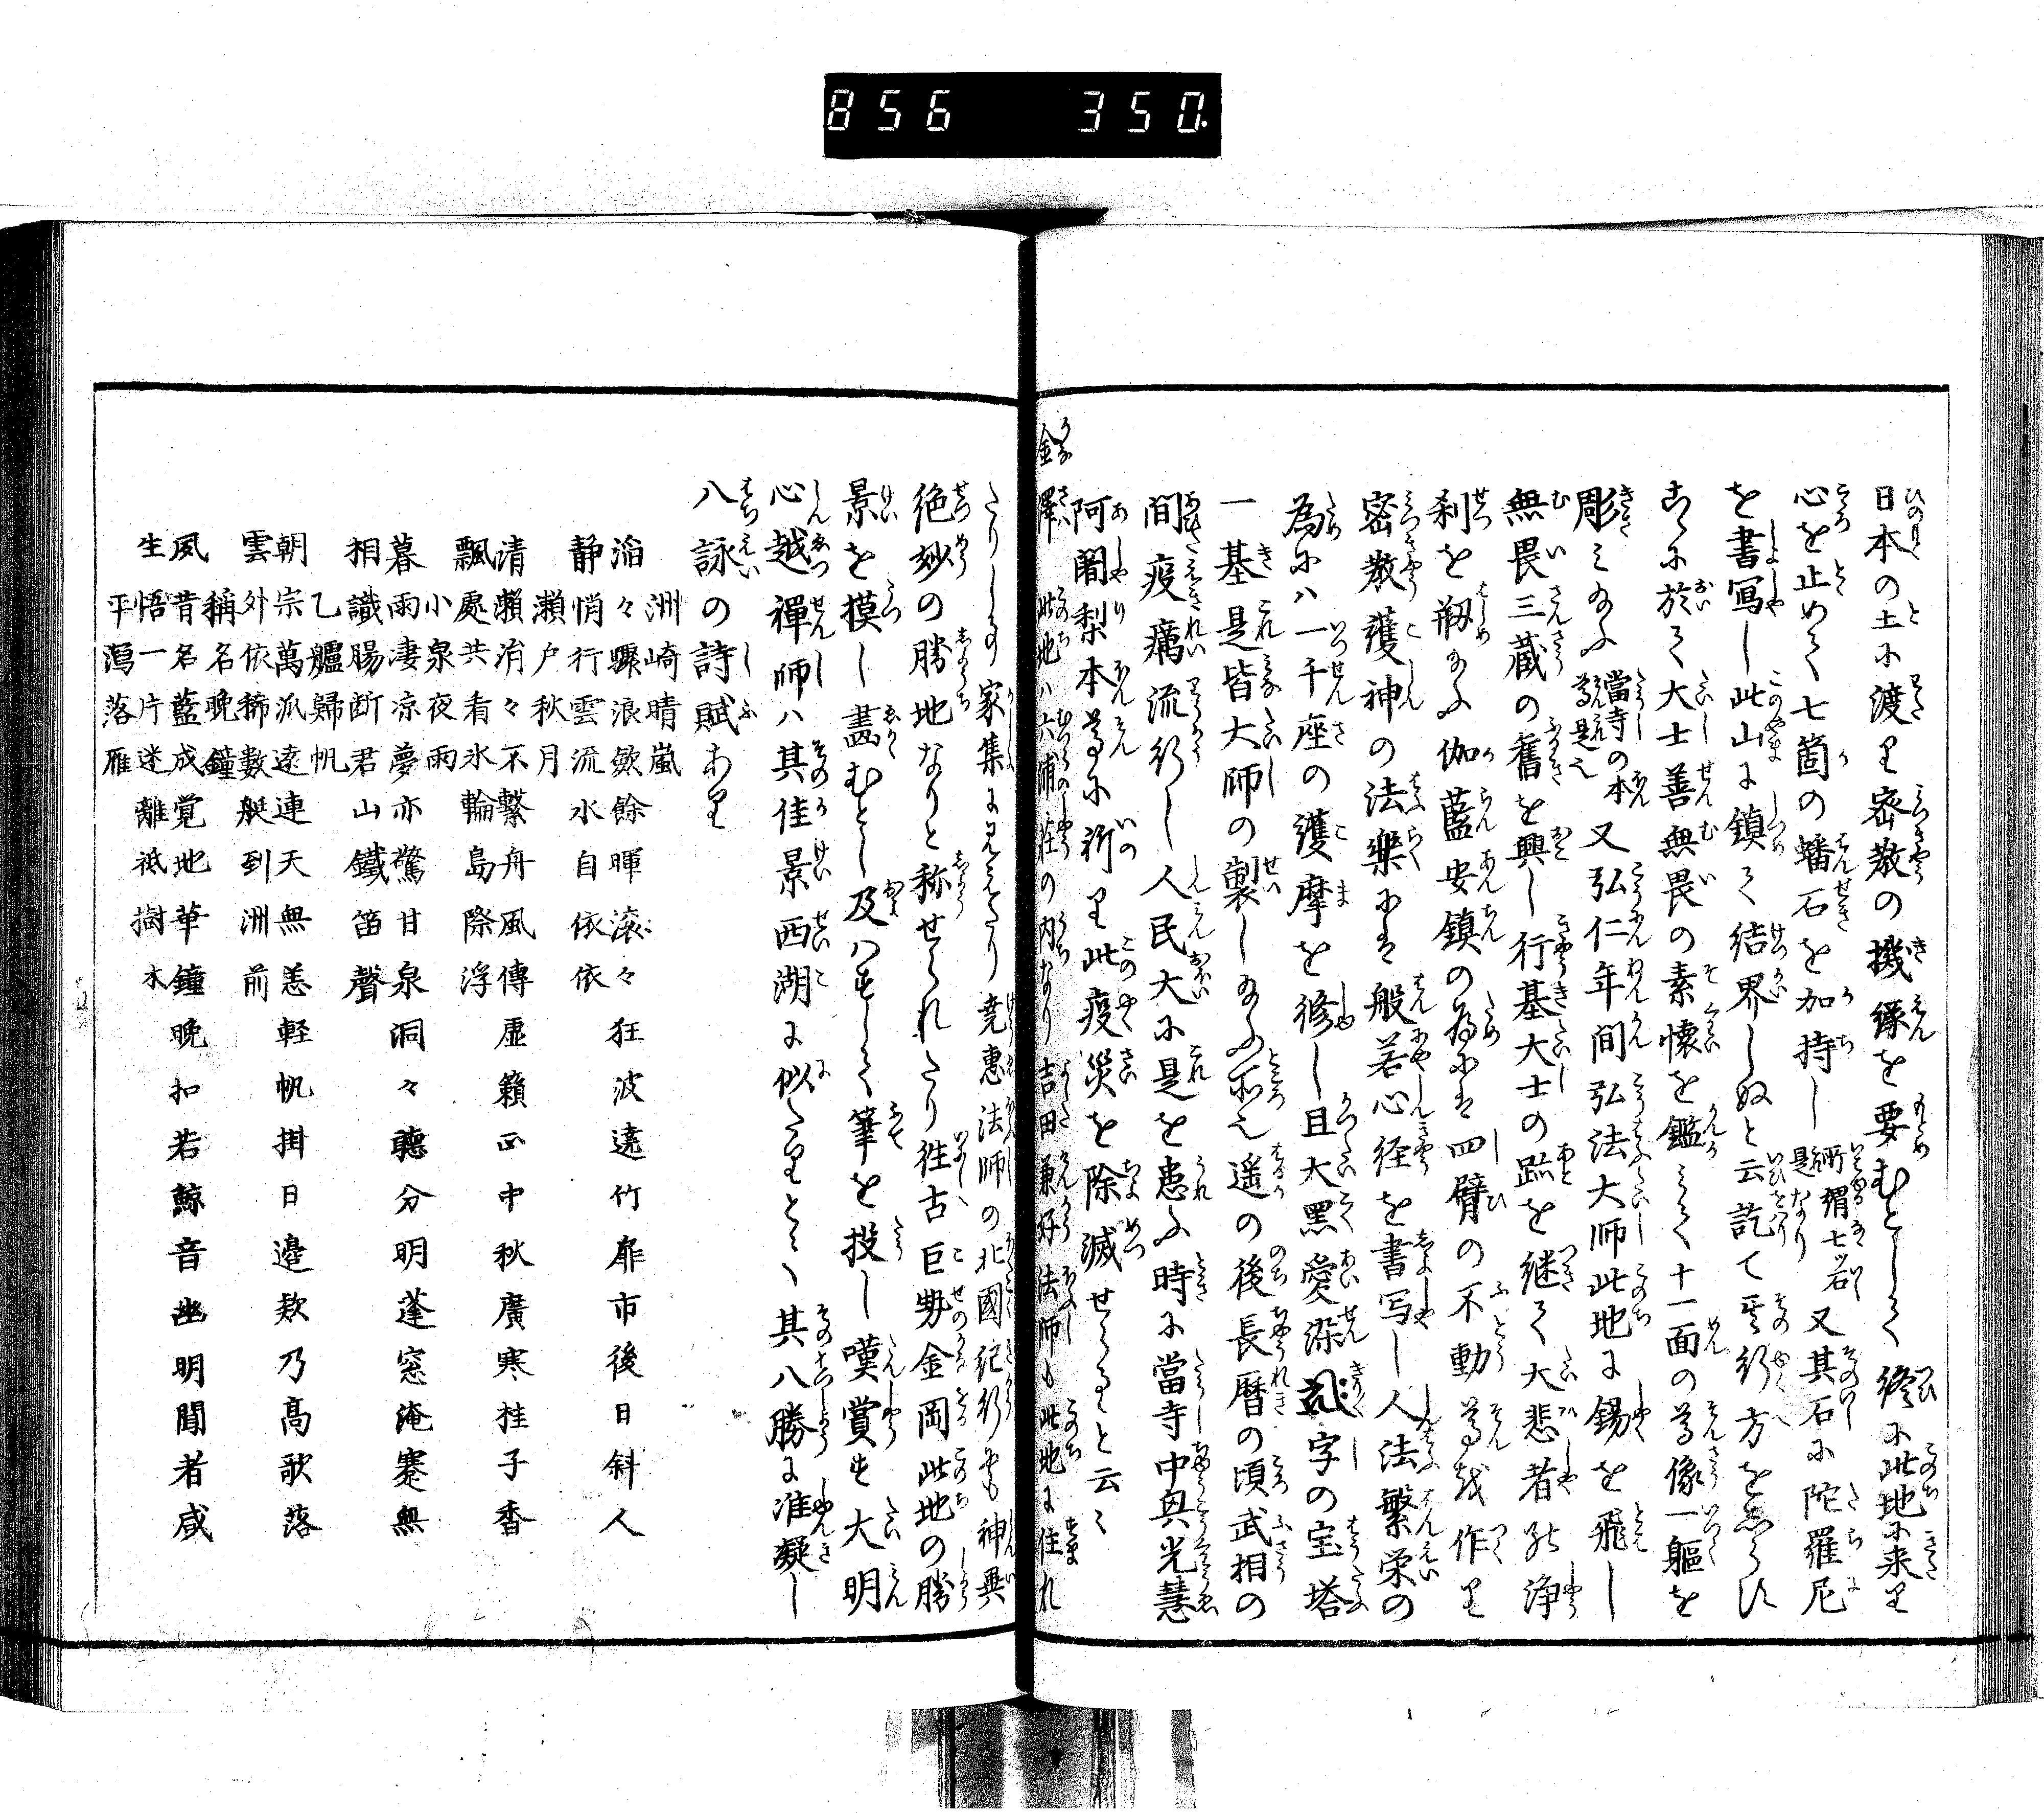 856 350.
日本の土に渡り密教の機縁を要むとして終に此地に来り
心を止めて七箇の蟠石を加持し所謂七石是なり又其石に陀羅尼
を書写し此山に鎮て結界しぬと云訖て其行方をしらす
こゝに於て大士善無畏の素懐を鑑みて十一面の尊像一軀を
彫み給ふ當寺の本尊是也又弘仁年間弘法大師此地に錫を飛し
無畏三蔵の舊を興し行基大士の跡を継て大悲者の浄
刹を剏め給ふ伽藍安鎮の為には四臂の不動尊を作り
密教護神の法樂には般若心経を書写し人法繁栄の
為には一千座の護摩を修し且大黒愛染字の宝塔
一基是皆大師の製し給ふ所也遥の後長暦の頃武相の
間疫癘流行し人民大に是を患ふ時に當寺中興光慧
阿闍梨本尊に祈り此疫災を除滅せらると云々
金澤此地ハ六浦荘の内なり吉田兼好法師も此地に住れ
たりしよし家集に見えたり堯惠法師の北國紀行にも神興
絶妙の勝地なりと称せられたり徃古巨勢金岡此地の勝
景を摸し畫むとし及ハすして筆を投し嘆賞す大明
心越禪師ハ其佳景西湖に似たりとて其八勝に准擬し
八詠の詩賦あり
洲崎晴嵐
滔々驟浪歛餘暉滚々狂波遶竹扉市後日斜人
静悄行雲流水自依依
瀬戸秋月
清瀬涓々不繋舟風傳虚籟正中秋廣寒桂子香
飄處共看氷輪島際浮
小泉夜雨
暮雨凄凉夢亦驚甘泉洞々聴分明蓬窓淹蹇無
相識腸断君山鐵笛聲
乙艫歸帆
朝宗萬派遠連天無恙軽帆掛日邉欸乃高歌落
雲外依稀數艇到洲前
稱名晩鐘
夙昔名藍成覚地華鐘晩扣若鯨音幽明聞者咸
生悟一片迷離祗樹木
平潟落雁